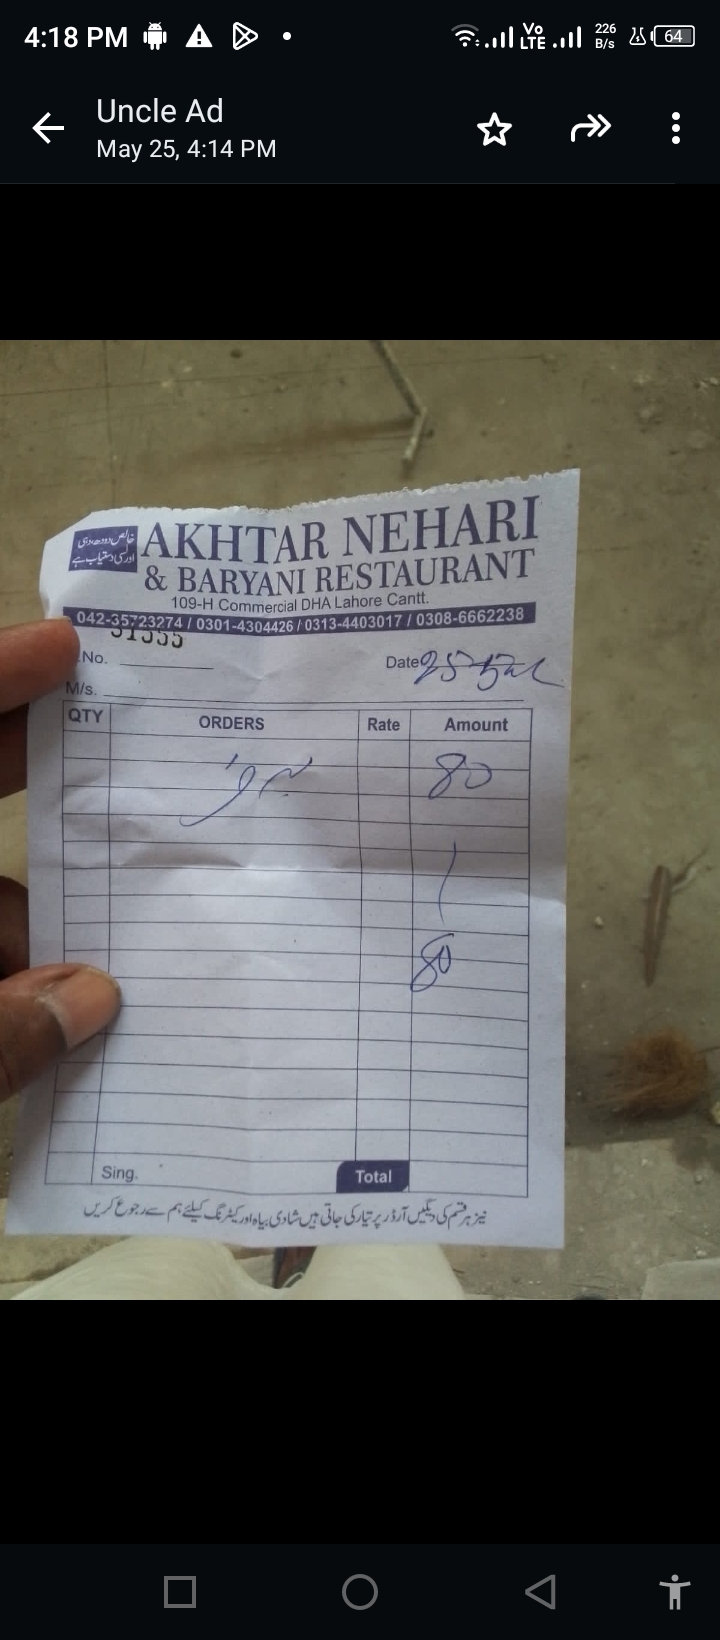 4:18 PM
Vo LTE
226 B/s
64
Uncle Ad
May 25, 4:14 PM
خالص دودھ دہی
اور لسی دستیاب ہے
AKHTAR NEHARI
& BARYANI RESTAURANT
109-H Commercial DHA Lahore Cantt.
042-35723274 / 0301-4304426 / 0313-4403017 / 0308-6662238
31555
.No.
Date 25-5
M/s.
QTY ORDERS Rate Amount
80
80
Sing. Total
نیز ہر قسم کی دیگیں آرڈر پر تیار کی جاتی ہیں شادی بیاہ اور کیٹرنگ کیلئے ہم سے رجوع کریں